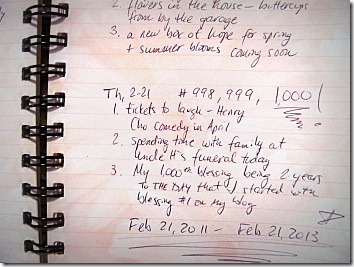 2. flowers in the house - buttercups
from by the garage
3. a new box of hope for spring
+ summer blooms coming soon
Th, 2-21 #998, 999, 1000!
1. tickets to laugh - Henry
Cho comedy in April
2. spending time with family at
Uncle H's funeral today
3. My 1,000th blessing being 2 years
TO THE DAY that I started with
blessing #1 on my blog
Feb 21, 2011 - Feb 21, 2013